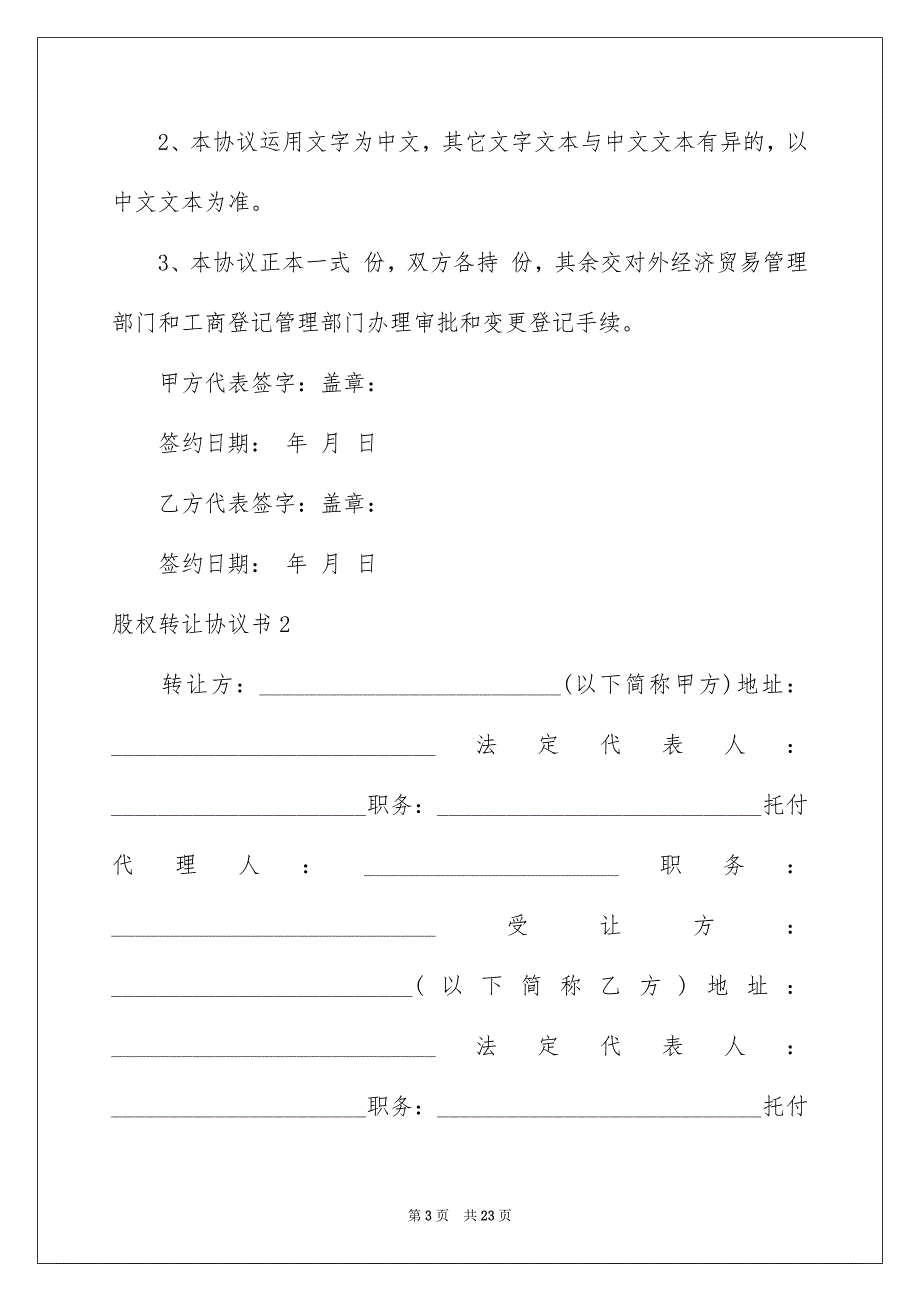 2、本协议运用文字为中文，其它文字文本与中文文本有异的，以
中文文本为准。
3、本协议正本一式 份，双方各持 份，其余交对外经济贸易管理
部门和工商登记管理部门办理审批和变更登记手续。
甲方代表签字：盖章：
签约日期： 年 月 日
乙方代表签字：盖章：
签约日期： 年 月 日
股权转让协议书2
转让方：__________________________(以下简称甲方)地址：
____________________________ 法定代表人：
______________________职务：____________________________托付
代理人：______________________ 职务：
____________________________ 受让方：
__________________________(以下简称乙方)地址：
____________________________ 法定代表人：
______________________职务：____________________________托付
第 3 页 共 23 页